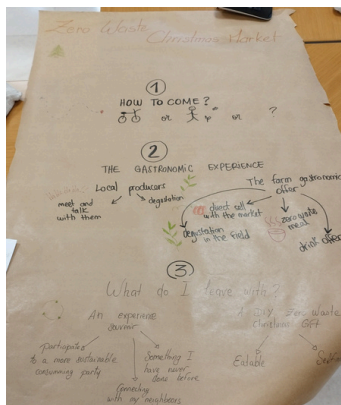 Zero Waste
Christmas Market
1
HOW TO COME?
or or ?
2
THE GASTRONOMIC EXPERIENCE
Local producers
meet and
talk
with them
degustation
The farm gastronomic
offer
direct sell
with the market
degustation
in the field
zero waste
meal
drink offer
3
What do I leave with?
An experience
souvenir
participates
to a more sustainable
consuming party
Something I
have never
done before
Connecting
with my neighbors
A DIY Zero Waste
christmas Gift
Eatable